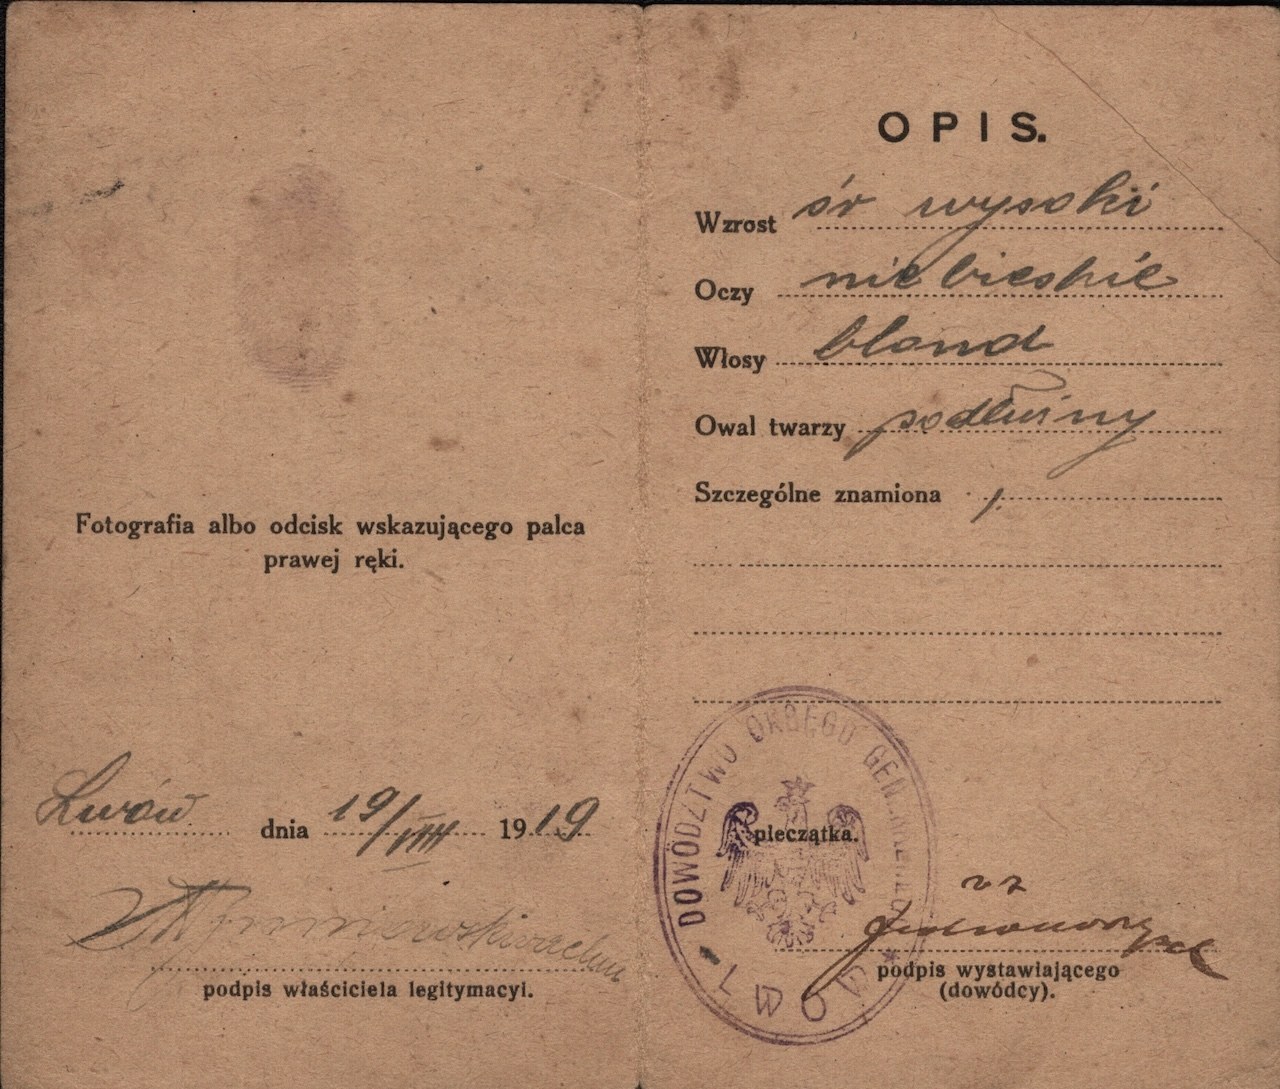 Fotografia albo odcisk wskazującego palca
prawej ręki.
Lwów dnia 19/VIII 1919
podpis właściciela legitymacyi.
OPIS.
Wzrost śr wysoki
Oczy niebieskie
Włosy blond
Owal twarzy podłużny
Szczególne znamiona /.
DOWÓDZTWO OKRĘGO GEN.
LWÓW
pieczątka.
podpis wystawiającego
(dowódcy).